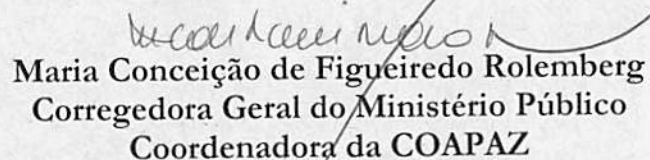 Maria Conceição de Figueiredo Rolemberg
Corregedora Geral do Ministério Público
Coordenadora da COAPAZ